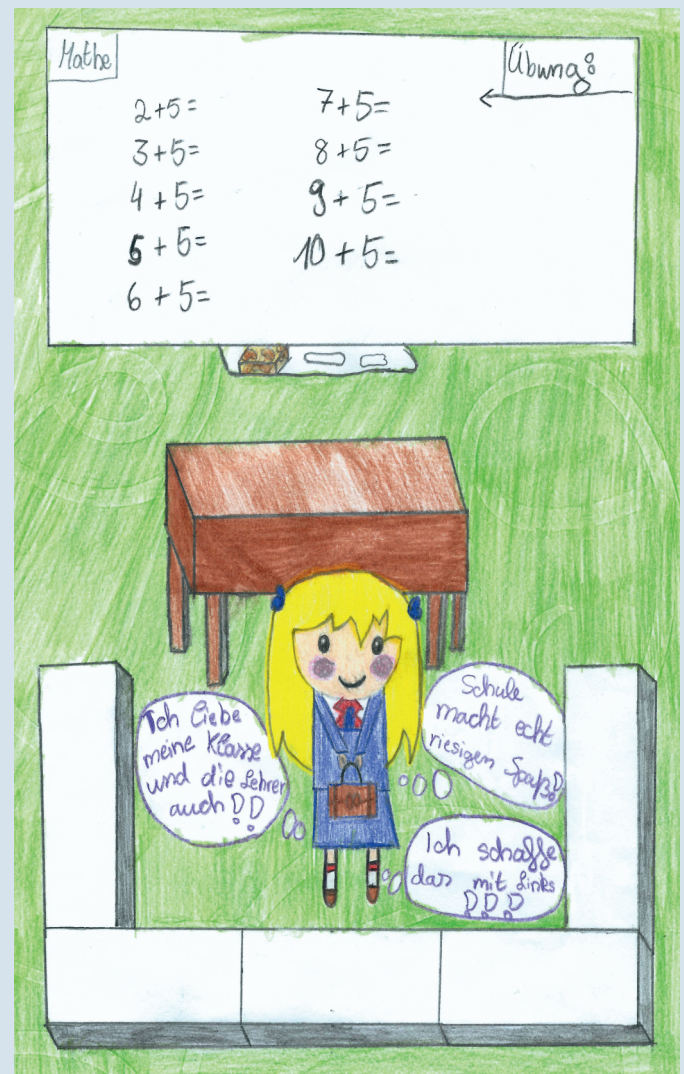 Mathe
Übung:
2+5=
3+5=
4+5=
5+5=
6+5=
7+5=
8+5=
9+5=
10+5=
Ich liebe
meine Klasse
und die Lehrer
auch!!
Schule
macht echt
riesigen Spaß!
Ich schaffe
das mit Links
!!!